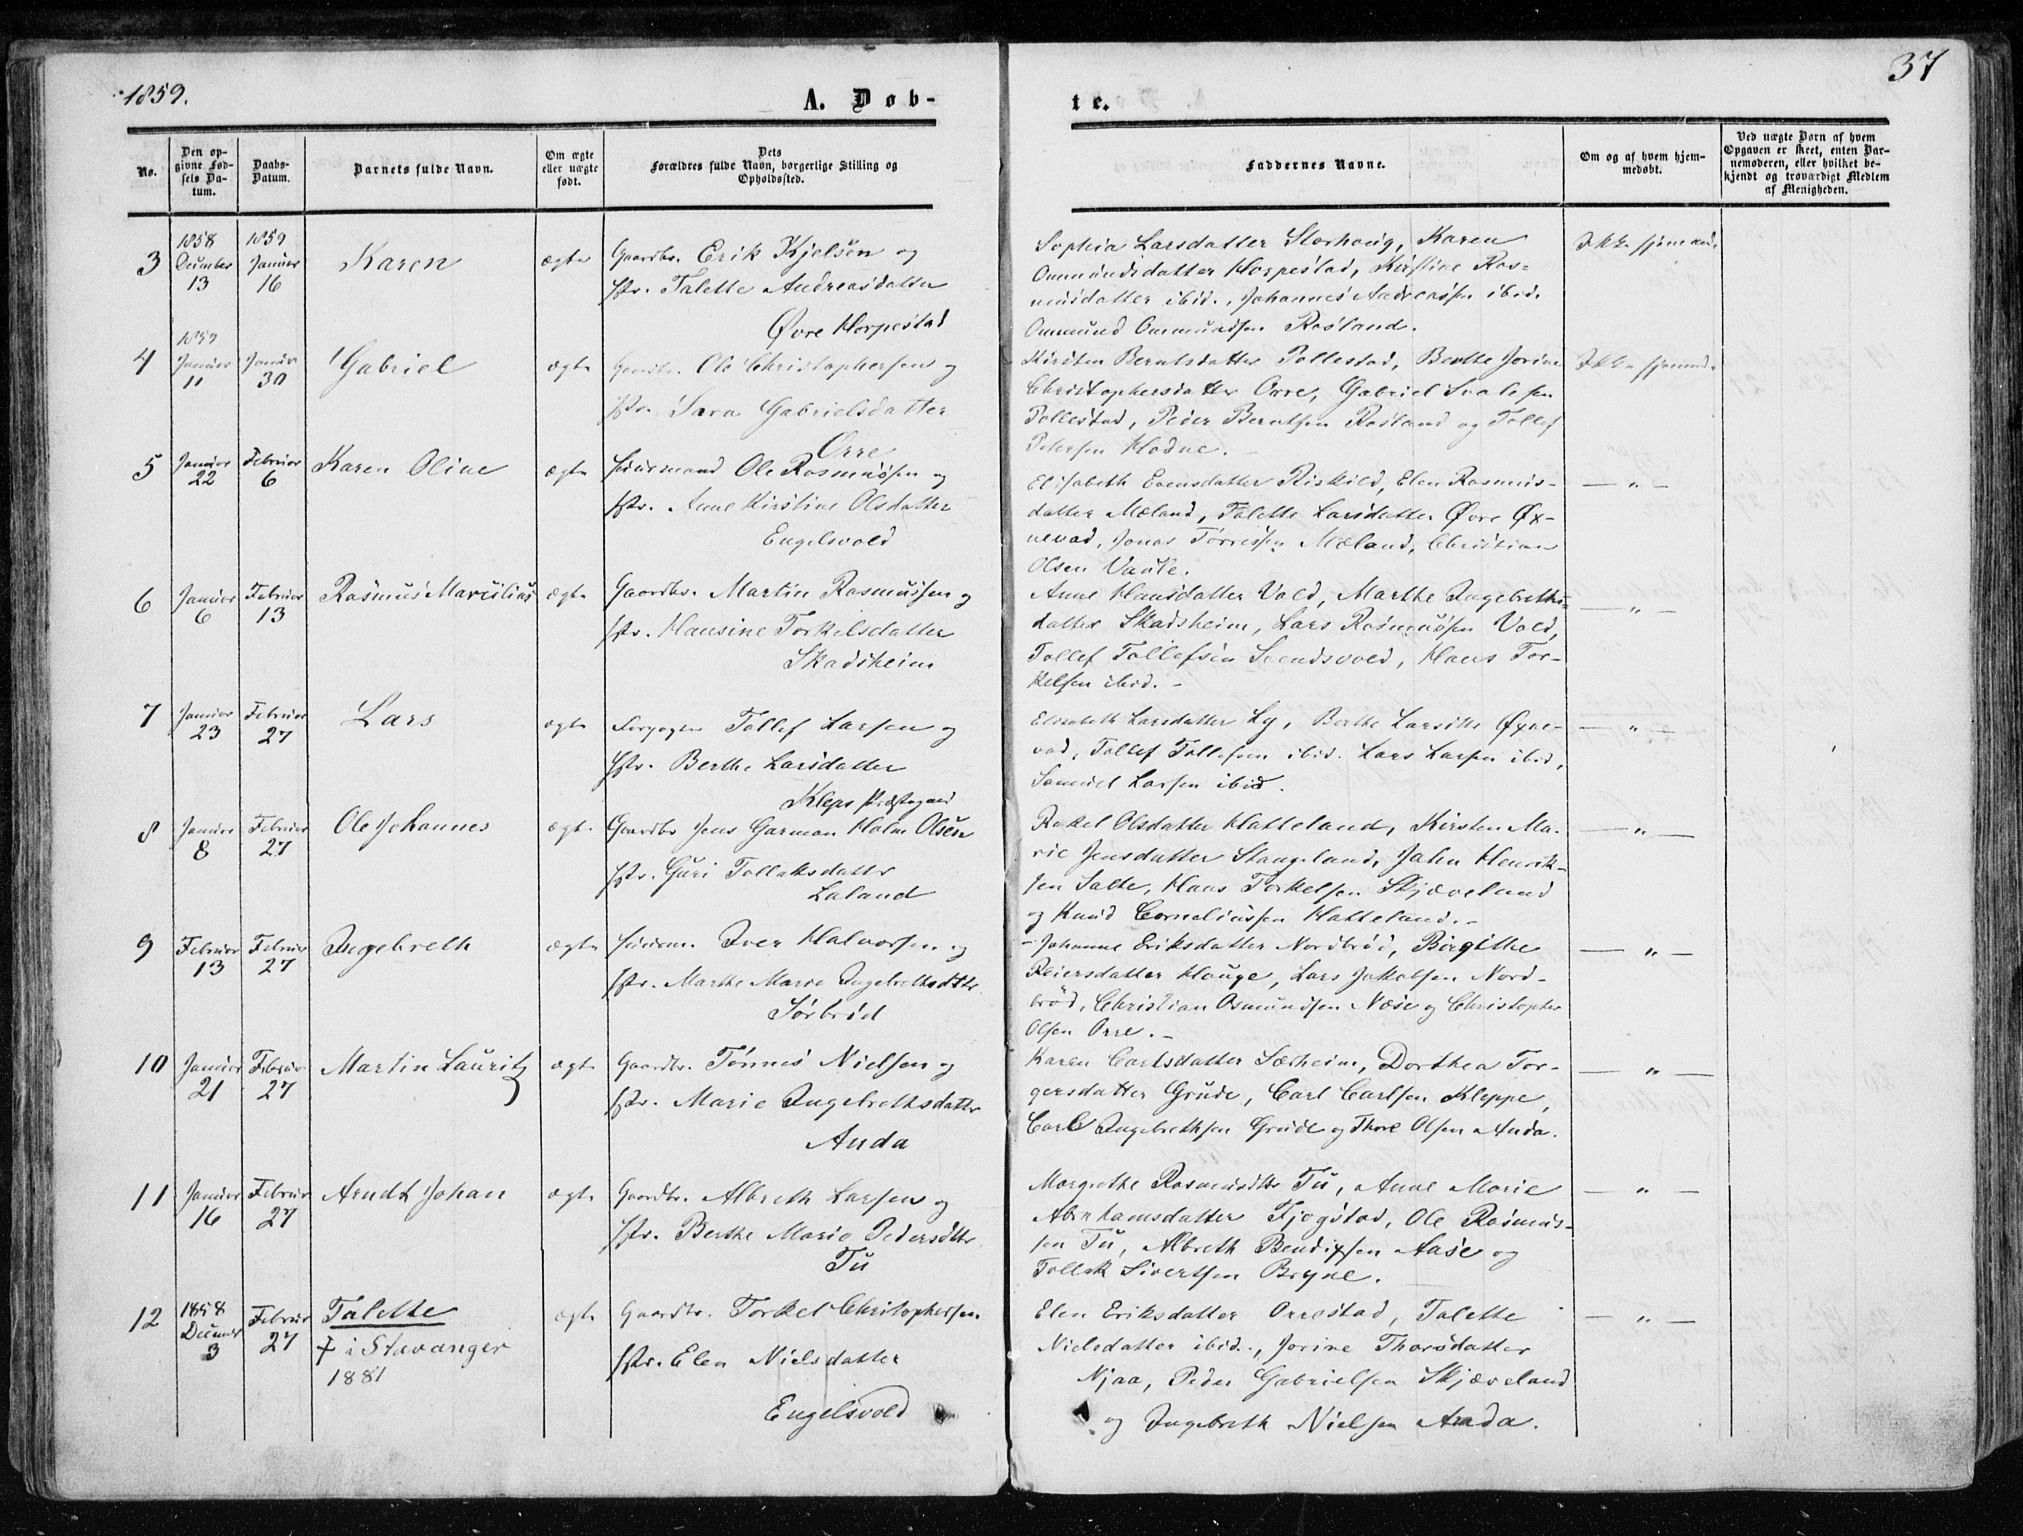 1859.
A. Døb-
te.
37
No.
Den op-
givne Fød-
sels Da-
tum.
Daabs-
Datum.
Barnets fulde Navn.
Om ægte
eller uægte
født.
Dets
Forældres fulde Navn, borgerlige Stilling og
Opholdssted.
Faddernes Navne.
Om og af hvem hjem-
medøbt.
Ved uægte Børn af hvem
Opgaven er skeet, enten Bar-
nemoderen, eller hvilket be-
kjendt og troværdigt Medlem
af Menigheden.
3
1858
December
13
1859
Januar
16
Karen
ægte
Gaardbr. Erik Kjelsen og
Hstr. Talette Andreasdatter
Øvre Horpestad
Sophia Larsdatter Storhoug, Karen
Ommundsdatter Horpestad, Kirstine Ras-
musdatter ibid., Johannes Andreassen ibid.
Ommund Ommundsen Rosland.
Ikke hjemmd.
4
1859
Januar
11
Januar
30
Gabriel
ægte
Gaardbr. Ole Christophersen og
Hstr. Sara Gabrielsdatter
Orre
Kirsten Berntsdatter Pollestad, Berthe Jorine
Christophersdatter Orre, Gabriel
Pollestad, Peder Berntsen Rosland og Tollef
Petersen Hodne.
Ikke hjemmd.
5
Januar
22
Februar
6
Karen Oline
ægte
Huusmand Ole Rasmussen og
Hstr. Anne Kirstine Olsdatter
Engelsvold
Elisabeth Evensdatter Riskild, Elen Rasmus-
datter Mæland, Talette Larsdatter Øvre Øx-
nevad, Jonas Torressen Mæland, Christian
Olsen Vaule.
— " —
6
Januar
6
Februar
13
Rasmus Marcilius
ægte
Gaardbr. Martin Rasmussen og
Hstr. Hansine Torkelsdatter
Skadsheim
Anne Hansdatter Vold, Marthe Ingebreths-
datter Skadsheim, Lars Rasmussen Vold,
Tollef Tollefsen Svendsvold, Hans Tor-
kelsen ibid. -
— " —
7
Januar
23
Februar
27
Lars
ægte
Forpagter Tollef Larsen og
Hstr. Berthe Larsdatter
Kleps Præstegaard
Elisabeth Larsdatter Ly, Berthe Larsdtr Øxne-
vad, Tollef Tollefsen ibid. Lars Larsen ibid,
Samuel Larsen ibid.
— " —
8
Januar
8
Februar
27
Ole Johannes
ægte
Gaardbr Jens Garman Holm Olsen
Hstr. Guri Tollaksdatter
Laland
Rakel Olsdatter Hatteland, Kirsten Ma-
rie Jensdatter Stangeland, John Henrik-
sen Salte, Hans Torkelsen Skjæveland
og Knud Corneliussen Hatteland. -
— " —
9
Februar
13
Februar
27
Ingebreth
ægte
Huusm. Iver Halvorsen og
Hstr. Marthe Marie Ingebrethsdttr
Sørbrød
Johanne Eriksdatter Nordbrød, Birgithe
Reiersdatter Hauge, Lars Jakobsen Nord-
brød, Christian Osmundsen Næse og Christopher
Olsen Orre. -
— " —
10
Januar
21
Februar
27
Martin Lauritz
ægte
Gaardbr. Tønnes Nielsen og
Hstr. Marie Ingebrethsdatter
Anda
Karen Carlsdatter Særheim, Dorthea Tor-
gersdatter Grude, Carl Carlsen Kleppe,
Carl Ingebrethsen Grude og Thore Olsen Anda.
— " —
11
Januar
16
Februar
27
Arndt Johan
ægte
Gaardbr. Albreth Larsen og
Hstr. Berthe Marie Pedersdttr
Tu
Margrethe Rasmusdttr Tu, Anne Marie
Abrahamsdatter Fjogstad, Ole Rasmus-
sen Tu, Albreth Bendixsen Aase og
Tollak Sivertsen Bryne.
— " —
12
1858
December
3
Februar
27
Talette
† i Stavanger
1881
ægte
Gaardbr. Torkel Christophersen
Hstr. Elen Nielsdatter
Engelsvold
Elen Eriksdatter Orrestad, Talette
Nielsdatter ibid., Jorine Thorsdatter
Njaa, Peder Gabrielsen Skjæveland
og Ingebreth Nielsen Anda.
— " —